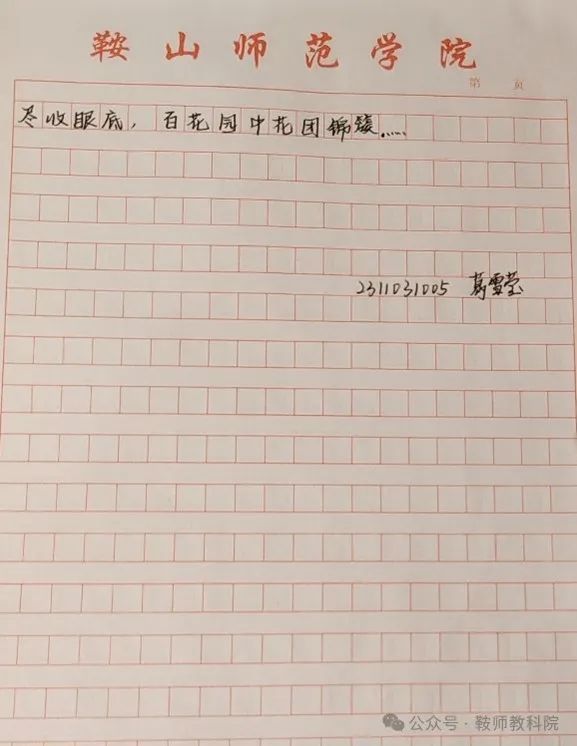 鞍山师范学院
第 页
尽收眼底，百花园中花团锦簇……
2311031005 葛雪莹
公众号·鞍师教科院